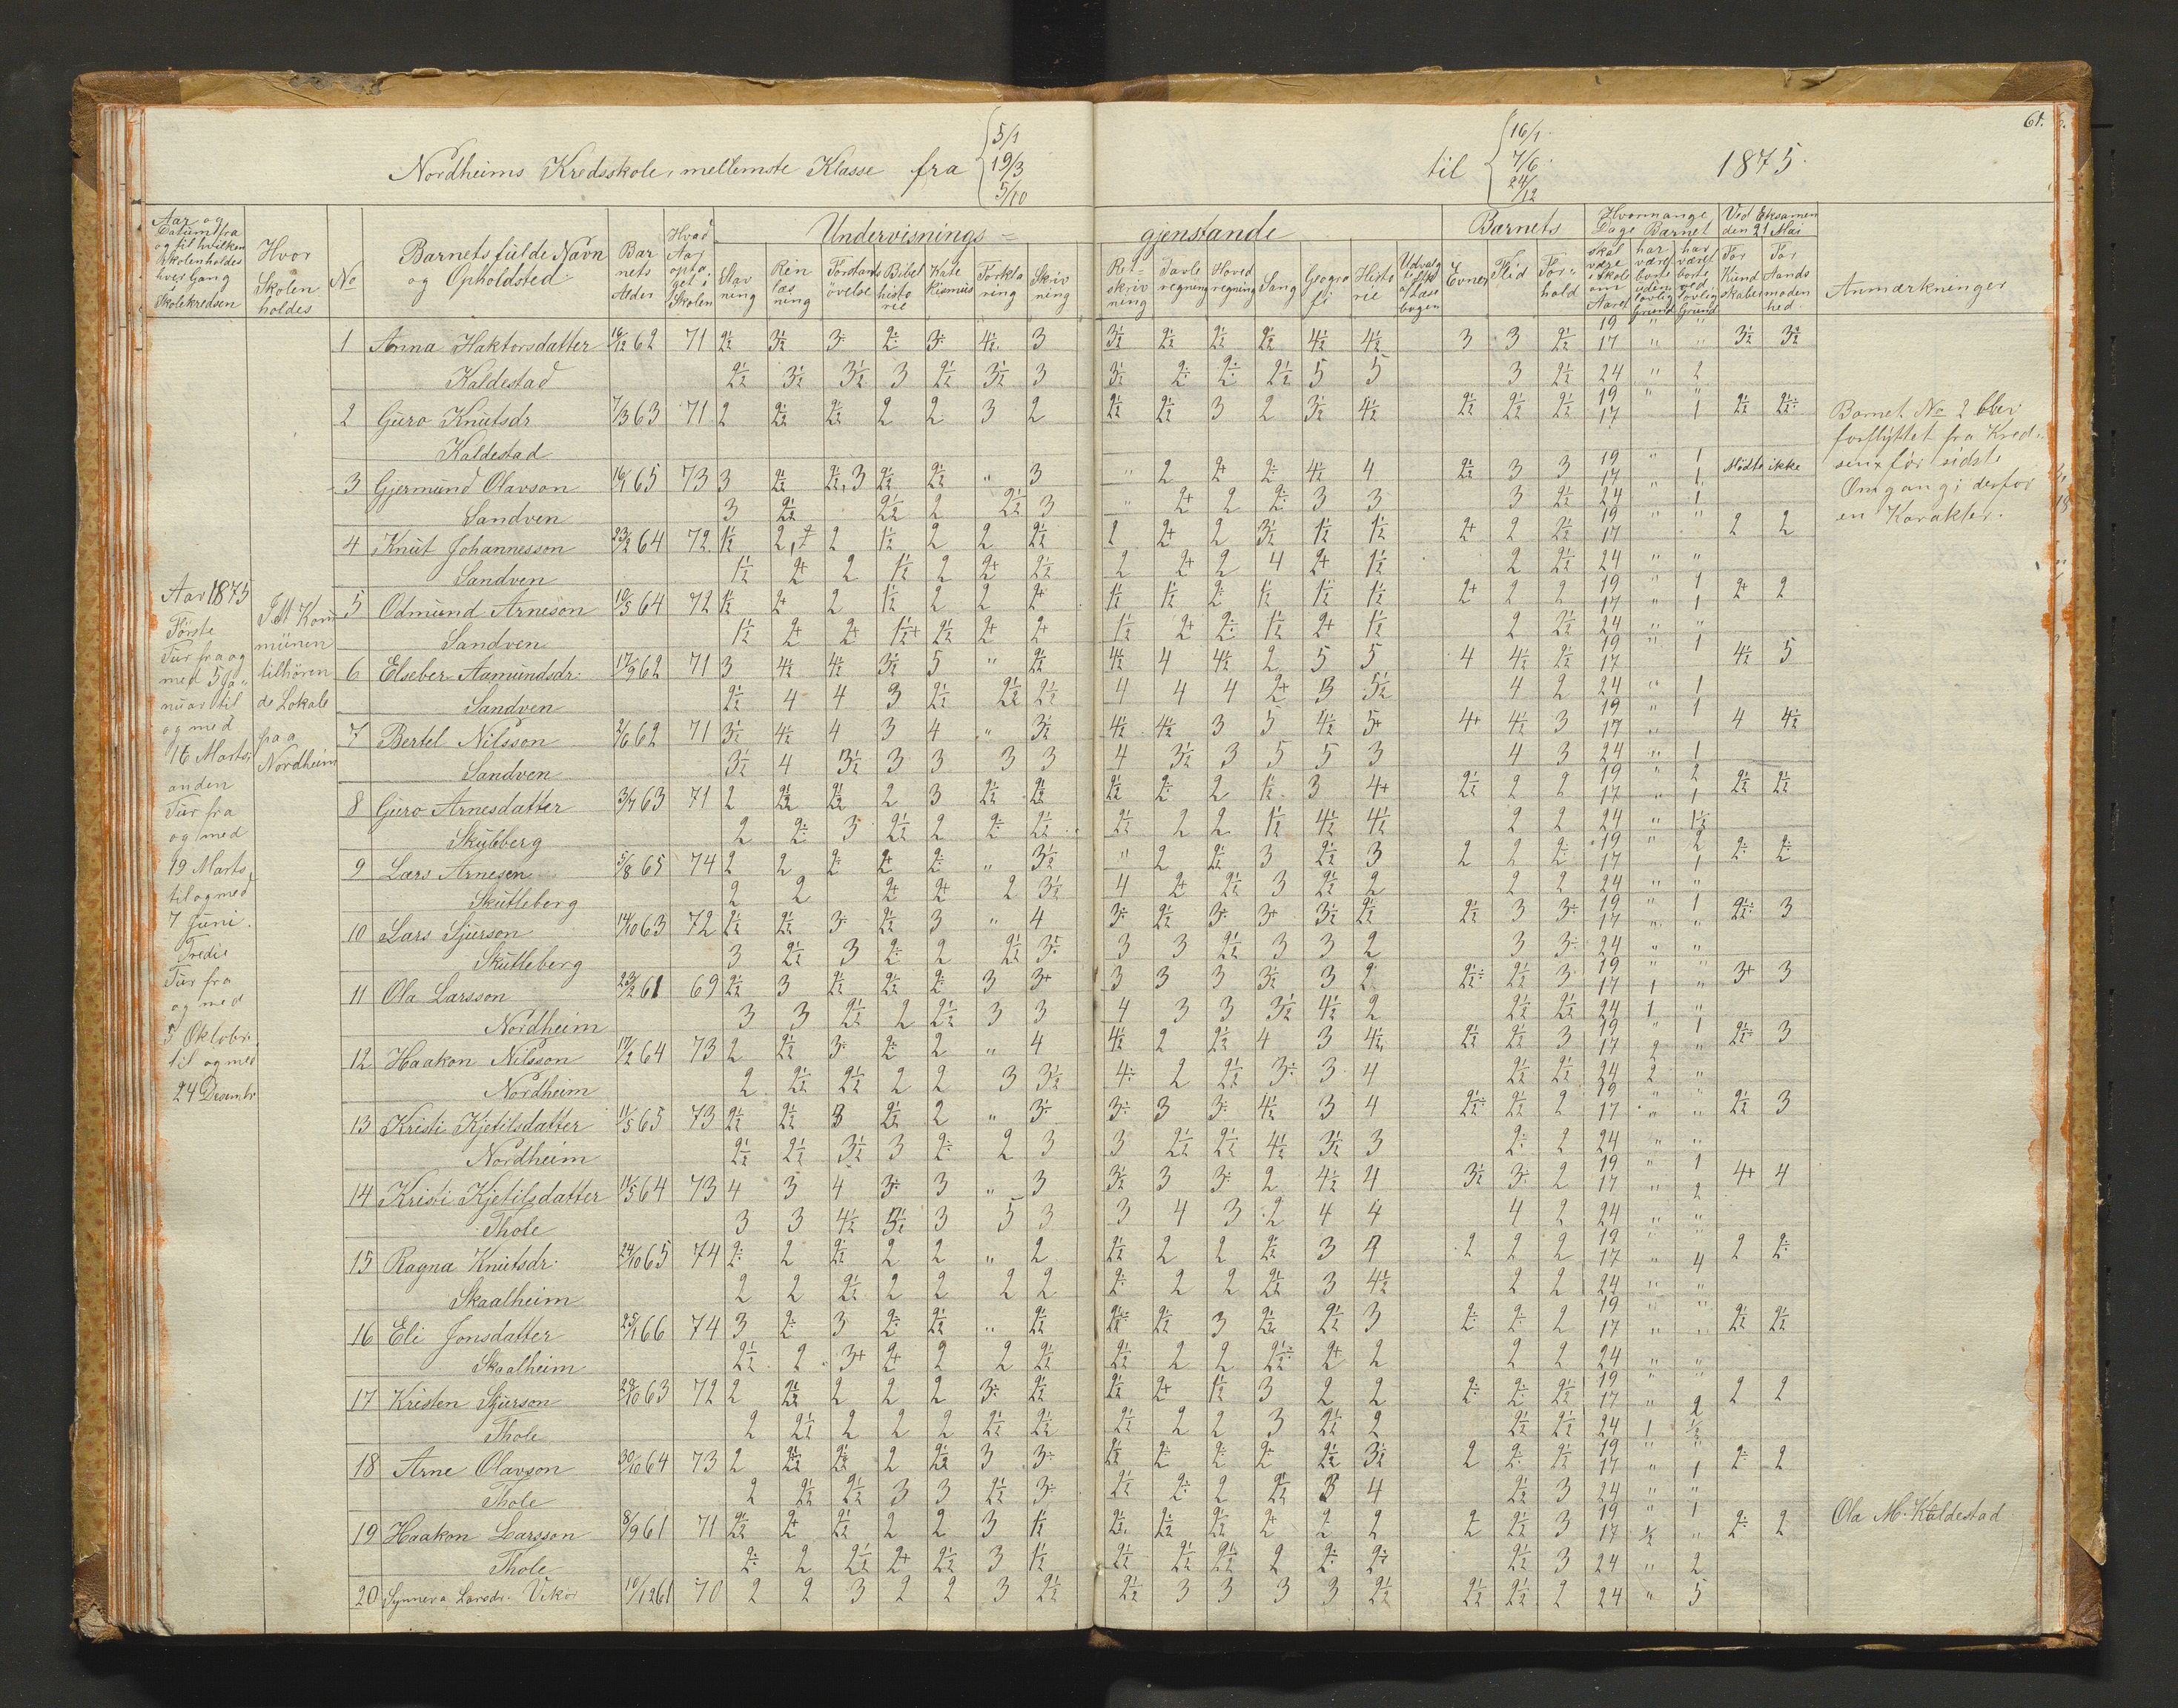 61.
Nordheims Kredsskole, mellemste Klasse fra 5/1 19/3 5/10 til 16/1 7/6 24/12 1875.
Aar og Datum fra og til hvilken Skolen holdes hver Gang i Skolekredsen
Hvor Skolen holdes
No
Barnets fulde Navn og Opholdsted
Barnets Alder
Hvad Aar optaget i Skolen
Undervisnings=gjenstande
Stavning
Ren læsning
Forstandsøvelse
Bibelhistorie
Katekismus
Forklaring
Skrivning
Retskrivning
Tavleregning
Hovedregning
Sang
Geografi
Historie
Udvalgte Stk af Læsebogen
Barnets
Evner
Flid
Forhold
Hvormange Dage Barnet
skal være i Skole om Aaret
har været borte uden lovlig Grund
har været borte ved lovlig Grund
Ved Eksamen den 21 Mai
For Kundskaber
For Aandsmodenhed
Anmærkninger
Aar 1875
Første
Tur fra og
med 5 Ja-
nuar til
og med
16 Marts;
anden
Tur fra
og med
19 Marts
til og med
7 Juni.
Tredie
Tur fra
og med
5 Oktober
til og med
24 Desembr
I et Kom
munen
tilhøren
de Lokale
paa
Nordheim
1 Anna Haktorsdatter 16/12 62 71 2½ 3½ 3÷ 2÷ 3÷ 4½ 3 3½ 2½ 2½ 2½ 4½ 4½ 3 3 2½ 19 17 " " 3½ 3½
Kaldestad 2½ 3½ 3½ 3 2½ 3½ 3 3½ 2÷ 2÷ 2½ 5 5 3 2½ 24 " 2
2 Guro Knutsdr 7/3 63 71 2 2½ 2½ 2 2 3 2 2½ 2½ 3 2 3½ 4½ 2½ 2½ 2½ 19 17 " 1 2½ 2½÷
Kaldestad
3 Gjermund Olavson 16/1 65 73 3 2½ 2½, 3 2½ 2½ " 3 " 2 2+ 2÷ 4½ 4 2½ 3 3 19 17 " 1 " 1 Mødte ikke
Sandven 3 2½ 2½ 2 2½ 3 " 2+ 2 2÷ 3 3 3 2½ 24 " 1
4 Knut Johannesson 23/2 64 72 1½ 2 2 1½ 2 2 2½ 2 2+ 2 3½ 1½ 1½ 2+ 2 2½ 19 17 " " 2 2
Sandven 1½ 2+ 2 1½ 2 2+ 2½ 2 2+ 2 4 2+ 1½ 2 2½ 24 " "
5 Odmund Arneson 10/5 64 72 1½ 2+ 2 1½ 2 2 2+ 1½ 1½ 2÷ 1½ 1½ 1½ 2+ 2 2 19 17 " 1 " 1 2+ 2
Sandven 1½ 2+ 2+ 1½+ 2½ 2+ 2+ 1½ 2+ 2÷ 1½ 2+ 1½ 2 2½ 24 " "
6 Elseber Aamundsdr. 17/9 62 71 3 4½ 4½ 3½ 5 " 2½ 4½ 4 4½ 2 5 5 4 4½ 2½ 19 17 " 1 4½ 5
Sandven 2½ 4 4 3 2½ 2½ 2½ 4 4 4 2+ 3 5½ 4 2 24 " 1
7 Bertel Nilsson 2/6 62 71 3½ 4½ 4 3 4 " 3½ 4½ 4½ 3 5 4½ 5+ 4+ 4½ 3 19 17 " 1 4 4½
Sandven 3½ 4 3½ 3 3 3 3 4 3½ 3 5 5 3 4 3 24 " 1
8 Guro Arnesdatter 3/7 63 71 2 2½ 2½ 2 3 2½ 2½ 2½ 2÷ 2 1½ 3 4+ 2½ 2 2 19 17 " 2 " 1 2½ 2½
Skutleberg 2 2÷ 3 2½ 2 2÷ 2½ 2½ 2 2 1½ 4½ 4½ 2 2 24 " 1½
9 Lars Arnesen 5/8 65 74 2 2 2÷ 2+ 2÷ " 3½ " 2 2½ 3 2½ 3 2 2 2÷ 19 17 " 2 1 2÷ 2÷
Skutleberg 2 2 2+ 2+ 2 3½ 4 2+ 2½ 3 2½ 2 2 2 24 " "
10 Lars Sjurson 14/10 63 72 2½ 2½ 3÷ 2½ 3 " 4 3÷ 2½ 3÷ 3+ 3½ 2½ 2½ 3 3÷ 19 17 " 1 " " 2½÷ 3
Skutleberg 3 2½ 3 2÷ 2 2½ 3½ 3 3 2½ 3 3 2 3 3÷ 24 " "
11 Ola Larsson 23/2 61 69 2½ 3 2½ 2½ 2÷ 3 3+ 3 3 3 3½ 3 2 2½÷ 2½ 3 19 17 " " 1 " 3+ 3
Nordheim 3 3 2½ 2 2½ 3 3 4 3 3 3½ 4½ 2 2½ 2½ 24 1 "
12 Haakon Nilsson 17/2 64 73 2 2½ 3÷ 2÷ 2 " 4 4½ 2 2½ 4 3 4½ 2½ 2½ 3 19 17 " 1 2 " 2½÷ 3
Nordheim 2 2½ 2½ 2 2 3 3½ 4÷ 2 2½ 3÷ 3 4 2½ 2½ 24 2 "
13 Kristi Kjetilsdatter 11/5 65 73 2½ 2½ 3 2½ 2 " 3÷ 3÷ 3 3÷ 4½ 3 4 2½÷ 2½ 2 19 17 " " 2½ 3
Nordheim 2½ 2½ 3½ 3 2÷ 2 3 3 2½ 2½ 4½ 3½ 3 2÷ 2 24 " "
14 Kristi Kjetilsdatter 11/5 64 73 4 3 4 3÷ 3 " 3 3½ 3 3÷ 2 4½ 4 3½ 3÷ 2 19 17 " 1 " 2 4+ 4
Thole 3 3 4½ 3½ 3 5 3 3 4 3 2 4 4 4 2 24 " "
15 Ragna Knutsdr. 24/10 65 74 2÷ 2 2½ 2 2 " 2 2½ 2 2 2½ 3 4 2 2 2 19 17 " 4 2 2÷
Skaalheim 2 2 2½ 2 2 2 2 2÷ 2 2 2½ 3 4½ 2 2 24 " "
16 Eli Jonsdatter 25/1 66 74 3 2÷ 3 2÷ 2½ " 2½ 2½÷ 2½ 3 2½ 2½ 3 2÷ 2÷ 2 19 17 " " 2½ 2½
Skaalheim 2½ 2 3+ 2+ 2 2 2½ 2½ 2 2 2½÷ 2+ 2 2 2 24 " "
17 Kristen Sjurson 29/10 63 72 2 2½ 2 2 2 3÷ 2½ 2½ 2+ 1½ 3 2 2 2÷ 2÷ 2½ 19 17 " 2 2 2
Thole 2 2½ 2 2 2 2½ 2½ 2½ 2 2 3 2½ 2 2½ 2½ 24 1 ½
18 Arne Olavson 30/10 64 73 2 2½ 2½ 2 2½ 3 3÷ 1½ 2÷ 2÷ 2÷ 2½ 3½ 2 2÷ 2½ 19 17 " 1 2÷ 2
Thole 2 2½ 2½ 3 3 2½ 3÷ 2½ 2÷ 2 2½ 3 4 2½ 3 24 " "
19 Haakon Larsson 8/9 61 71 2½ 2+ 2½ 2 2 3 1½ 2½ 2½ 2½ 2+ 2 2 2 2½ 3 19 17 " 1 ½ " 2÷ 2
Thole 2÷ 2 2½ 2+ 2½ 3 1½ 2½ 2½ 2½ 2 2÷ 2÷ 2½ 3 24 " 2
20 Synneva Larsdr. Vikør 10/12 61 70 2 2 3 2 2 3 2½ 2½ 3 3 3 3 2½ 2½ 2½ 2 24 " 5
Barnet No 2 blev
forflyttet fra Kred-
sen før sidste
Omgang; derfor
en Karakter.
Ola M. Kaldestad